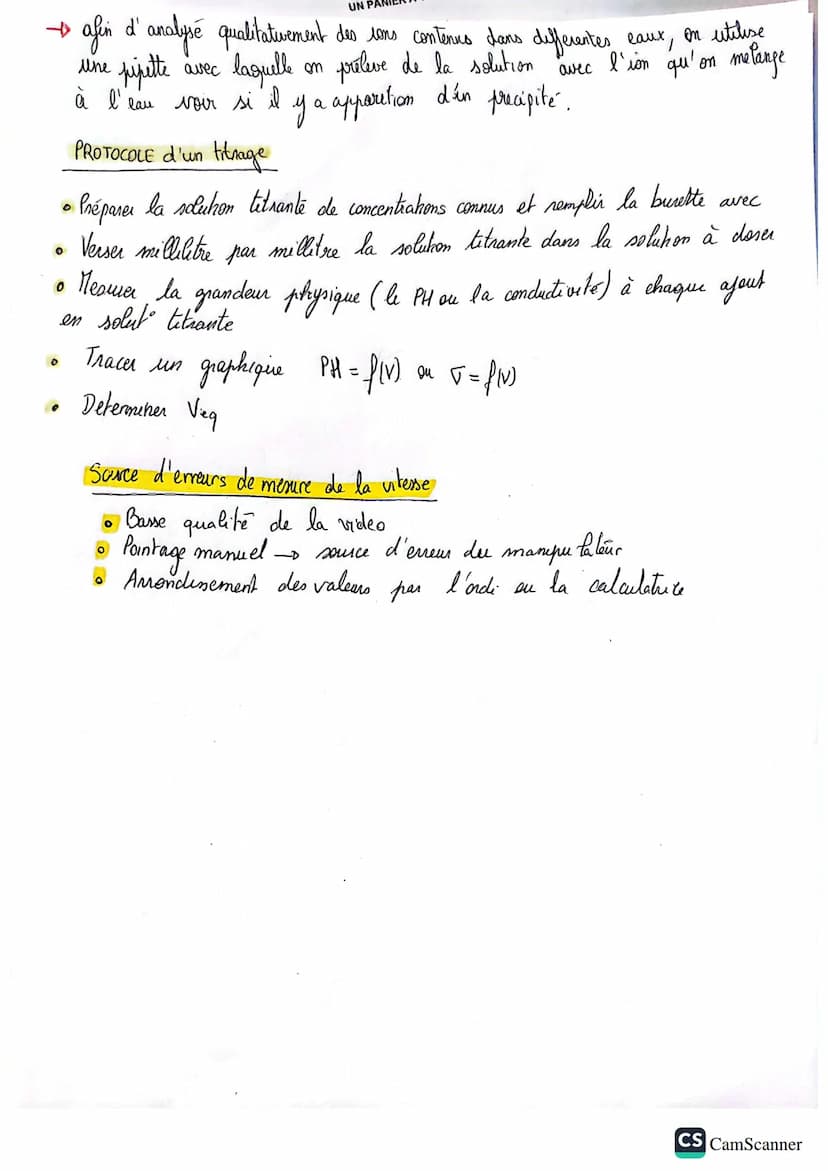 UN PANIER
→ afin d'analysé qualitativement des ions contenus dans differentes eaux, on utilise
une pipette avec laquelle on prélève de la solution avec l'ion qu'on melange
à l'eau voir si il y a apparution d'un precipité.
PROTOCOLE d'un titrage
• Préparer la solution titrante de concentrations connus et remplir la burette avec
• Verser millilitre par millitre la solution titrante dans la solution à doser
• Mesurer la grandeur physique (le PH ou la conductivité) à chaque ajout
en solut° titrante
• Tracer un graphique PH = f(V) ou σ = f(V)
• Determiner Veq
Source d'erreurs de mesure de la vitesse
• Basse qualité de la video
• Pointage manuel → source d'erreur du manipulateur
• Arrondissement des valeurs par l'ordi ou la calculatrice
CS CamScanner